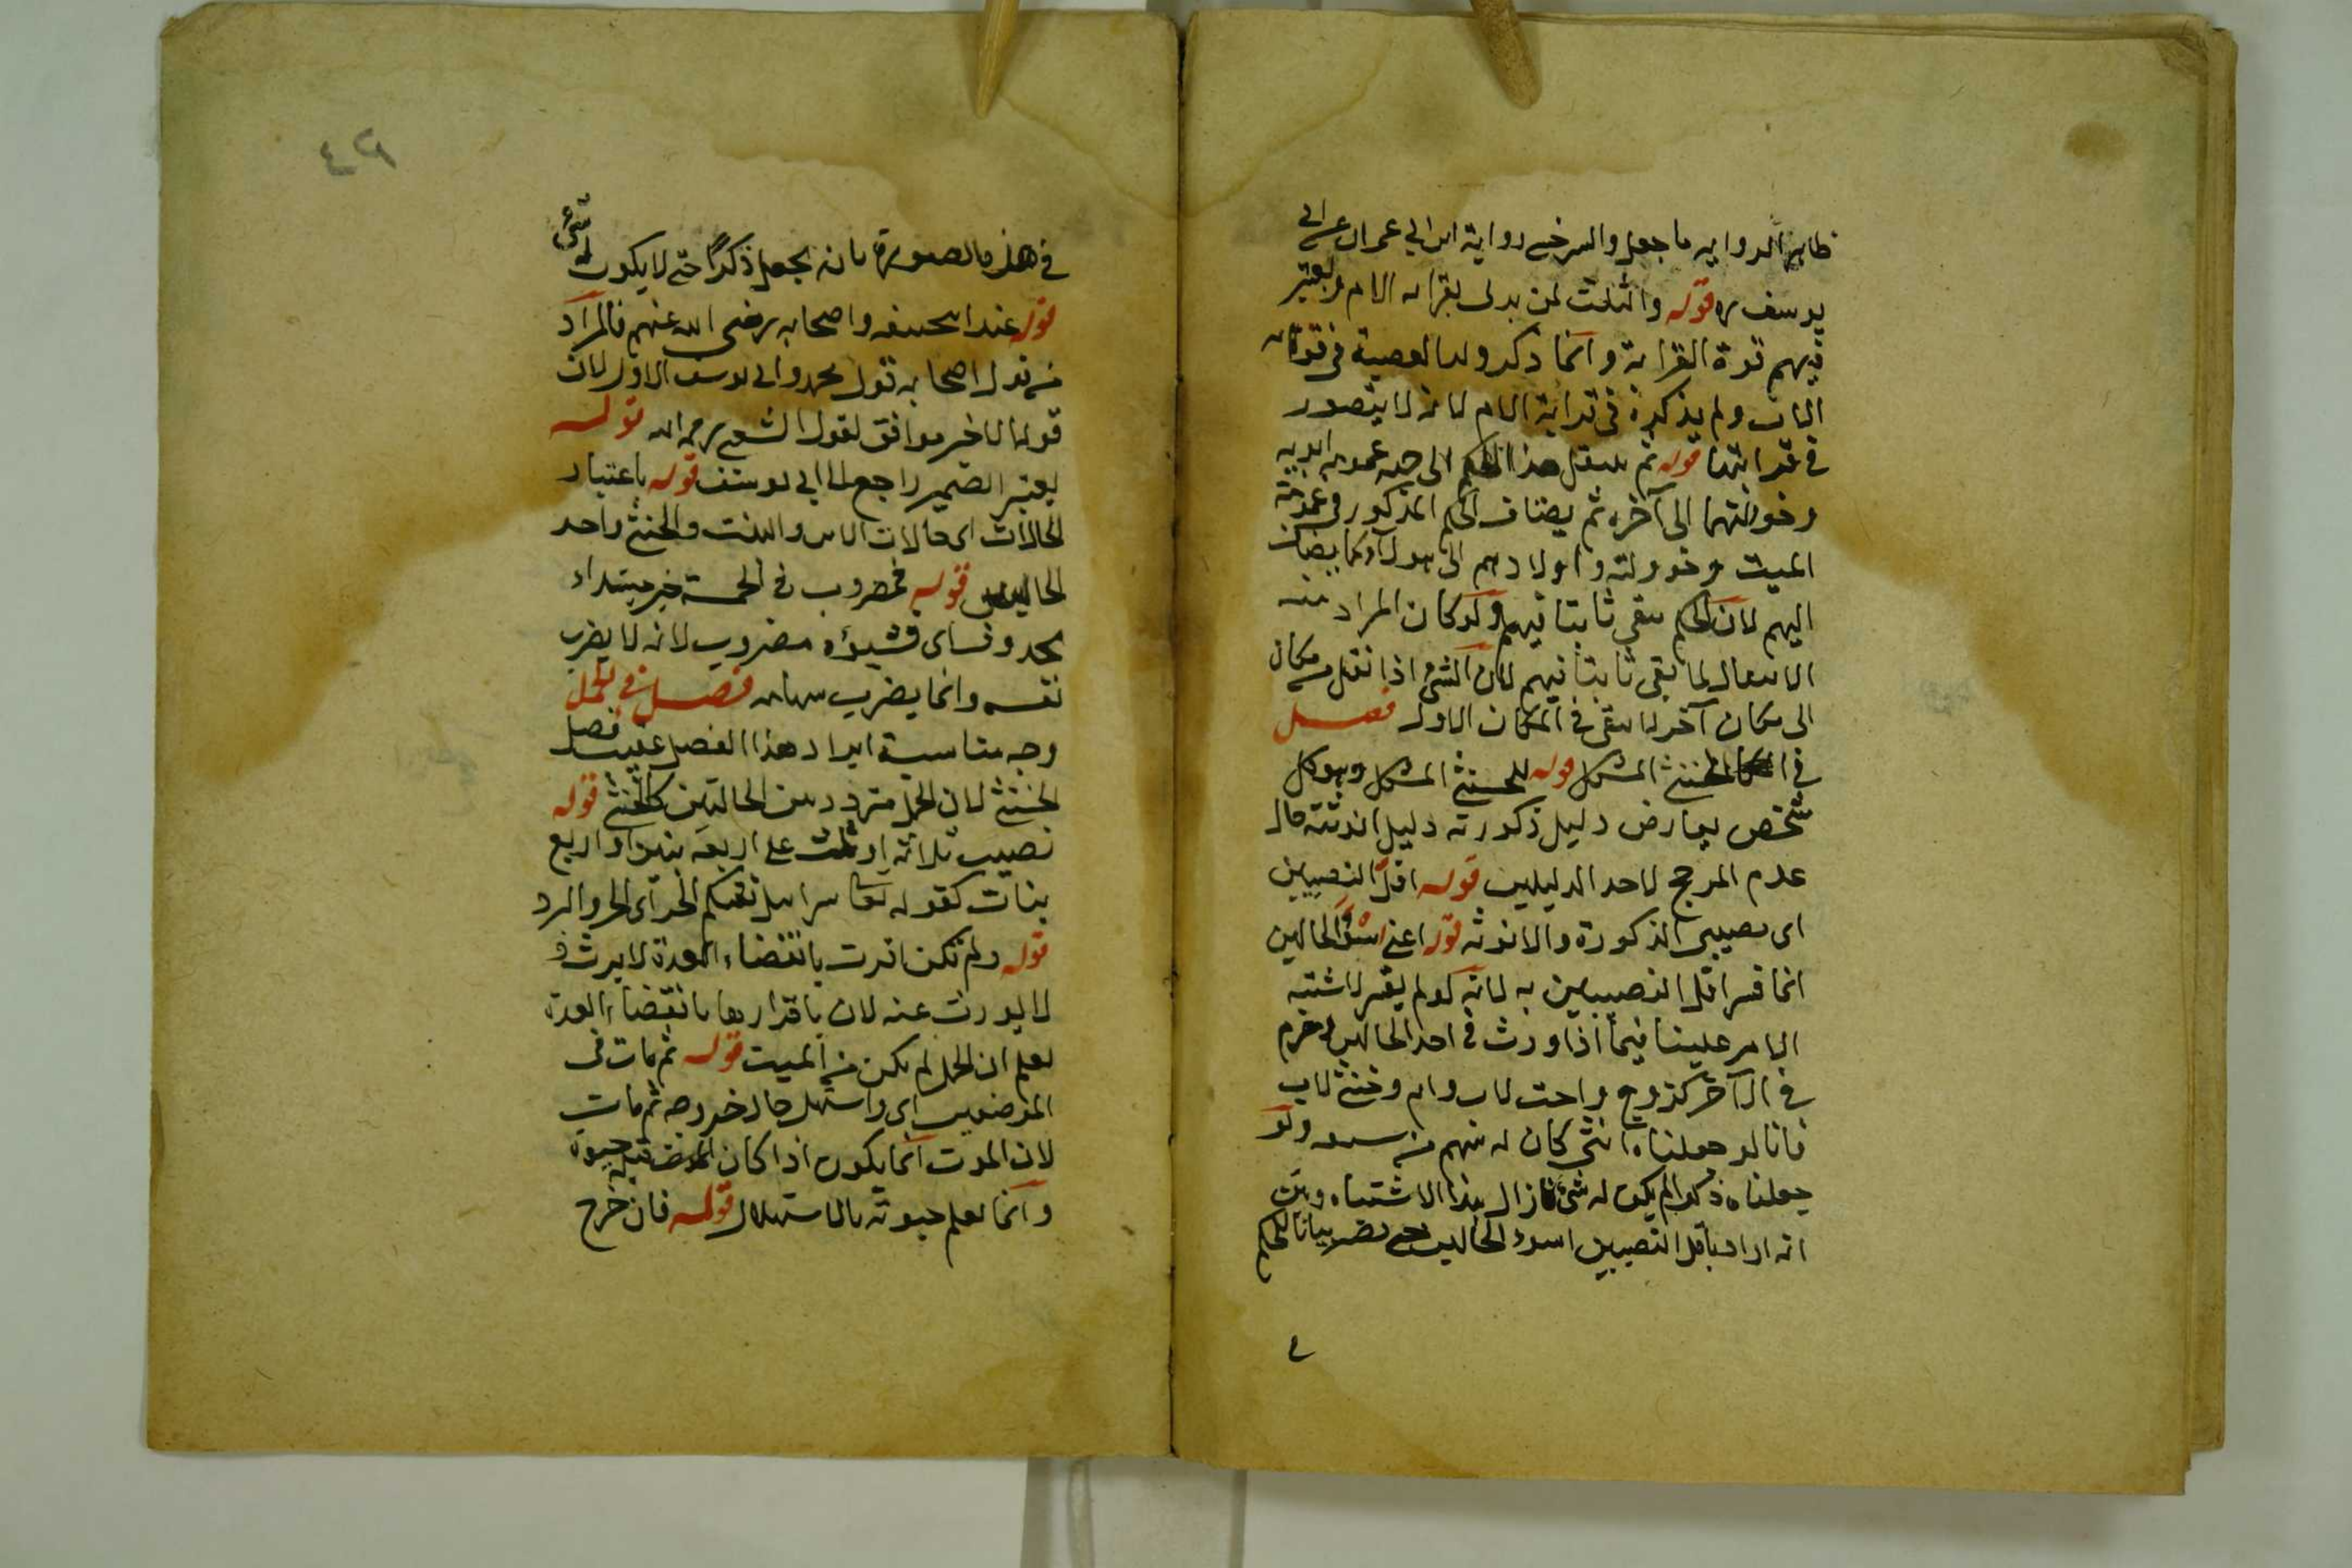 ظاهر الرواية ما جعل والسرخسى رواية ابن ابي عمران عن ابى
يوسف ره قوله والثلث لمن يدلى بقرابه الام ويعتبر
فيهم قوة القرابة وانما ذكر ولد العصبة فى قرابة
الاب ولم يذكره فى قرابة الام لانه لا يتصور
فى قرابتها قوله ثم ينتقل هذا الحكم الى جهه عمومه ابويه
وخولتهما الى آخره ثم يضاف الحكم المذكور فى عمومة
الميت وخوولته واولادهم الى هولاء كما يضاف
اليهم لان الحكم يبقى ثابتا فيهم ولو كان المراد منه
الانتقال لما بقى ثابتا فيهم لان الشئ اذا نقل من مكان
الى مكان آخر لا يبقى فى المكان الاول فصل
فى الخنثى المشكل قوله للخنثى المشكل وهو كل
شخص يعارض دليل ذكورته دليل انوثته حال
عدم المرجح لاحد الدليلين قوله اقل النصيبين
اى نصيبى الذكورة والانوثه قوله اعنى اسوأ الحالين
انما فسر اقل النصيبين به لانه لو لم يفسر لاشتبه
الامر علينا فيما اذا ورث فى احد الحالين وحرم
فى الآخر كزوج واخت لاب وام وخنثى لاب
فانا لو جعلناه انثى كان له سهم من سبعه ولو
جعلناه ذكرا لم يكن له شئ فازال هذا الاشتباه وبين
انه اراد باقل النصيبين اسوء الحالين حتى يصير بيانا للحكم
فى هذه الصورة بانه يجعل ذكرا حتى لا يكون له شئ
قوله عند ابى حنيفه واصحابه رضى الله عنهم فالمراد
من قول اصحابه قول محمد وابى يوسف الاول لان
قوله الاخر موافق لقول الشعبى رحمه الله قوله
يعتبر الضمير راجع الى ابى يوسف قوله باعتبار
الحالات اى حالات الابن والبنت والخنثى واحد
الحالين قوله فمضروب فى الخمسة خبر مبتداء
محذوف اى فشيؤه مضروب لانه لا يضرب
نفسه وانما يضرب سهامه فصل فى الحمل
وجه مناسبة ايراد هذا الفصل عقيب فصل
الخنثى لان الحمل متردد بين الحالتين كالخنثى قوله
نصيب ثلاثة او ثلث على اربعة بنين او اربع
بنات كقوله تعا سرابيل تقيكم الحر اى الحر والبرد
قوله ولم تكن اقرت بانقضاء العدة لا يرث و
لا يورث عنه لان باقرارها بانقضاء العدة
يعلم ان الحمل لم يكن من الميت قوله ثم مات فى
الموضعين اى واستهل حال خروجه ثم مات
لان الموت انما يكون اذا كان قبله حيوة
وانما يعلم حيوته بالاستهلال قوله فان خرج